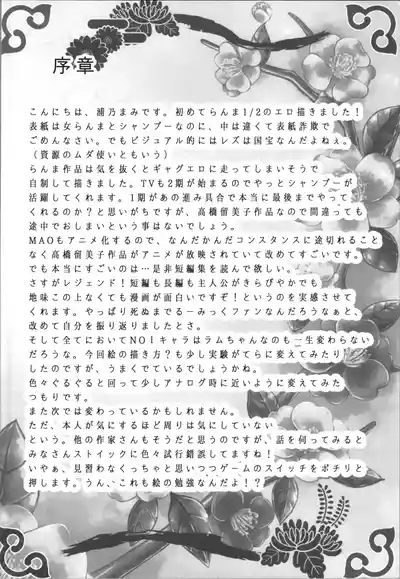 序章
こんにちは、浦乃まみです。初めてらんま1/2のエロ描きました！
表紙は女らんまとシャンプーなのに、中は違くて表紙詐欺で
ごめんなさい。でもビジュアル的にはレズは国宝なんだよねぇ。
（資源のムダ使いともいう）
らんま作品は気を抜くとギャグエロに走ってしまいそうで
自制して描きました。TVも2期が始まるのでやっとシャンプーが
活躍してくれます。1期があの進み具合で本当に最後までやって
くれるのか？と思いがちですが、高橋留美子作品なので間違っても
途中でおしまいという事はないでしょう。
MAOもアニメ化するので、なんだかんだコンスタンスに途切れること
なく高橋留美子作品がアニメが放映されていて改めてすごいです。
でも本当にすごいのは…是非短編集を読んで欲しい。
さすがレジェンド！短編も長編も主人公がきらびやかでも
地味この上なくても漫画が面白いですぞ！というのを実感させて
くれます。やっぱり死ぬまでる—みっくファンなんだろうなぁと、
改めて自分を振り返りましたとさ。
そして全てにおいてNO1キャラはラムちゃんなのも一生変わらない
だろうな。今回絵の描き方？も少し実験がてらに変えてみたり
したのですが、うまくでているでしょうかね。
色々ぐるぐると回って少しアナログ時に近いように変えてみた
つもりです。
また次では変わっているかもしれません。
ただ、本人が気にするほど周りは気にしていない
という。他の作家さんもそうだと思うのですが、話を伺ってみると
みなさんストイックに色々試行錯誤してますね！
いやぁ、見習わなくっちゃと思いつつゲームのスイッチをポチリと
押します。うん、これも絵の勉強なんだよ！？